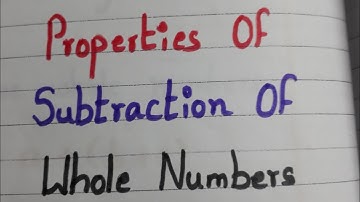 Properties Of
Subtraction Of
Whole Numbers